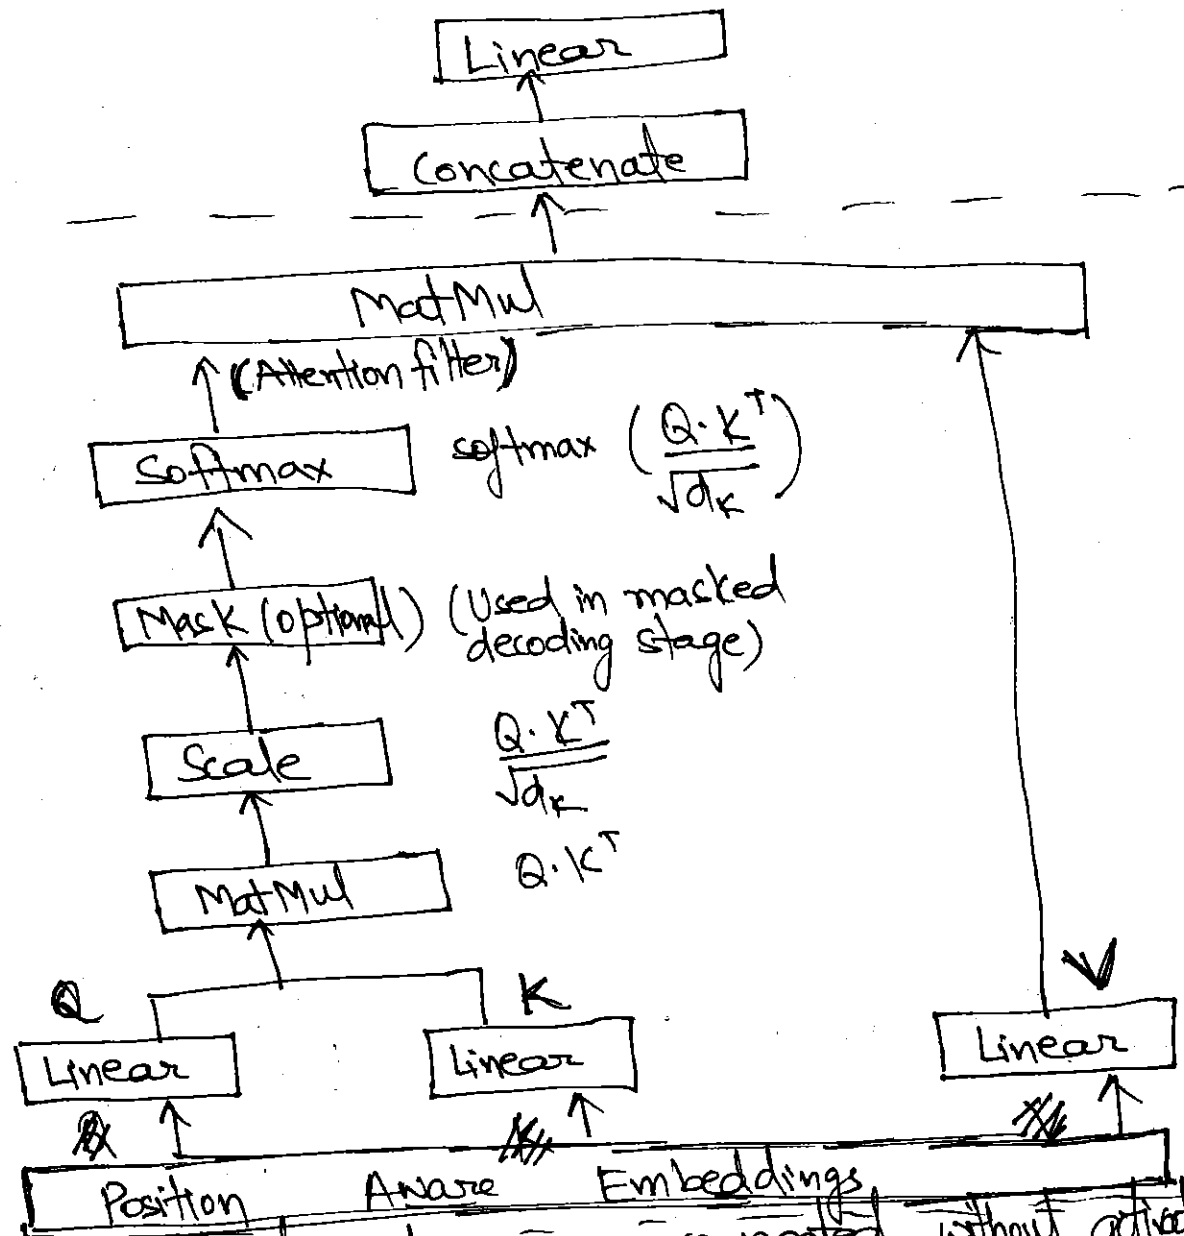 Linear
Concatenate
MatMul
(Attention filter)
Softmax softmax (Q.K^T / √d_K)
Mask (optional) (Used in masked
decoding stage)
Scale Q.K^T / √d_K
MatMul Q.K^T
Q K V
Linear Linear Linear
Position Aware Embeddings
without